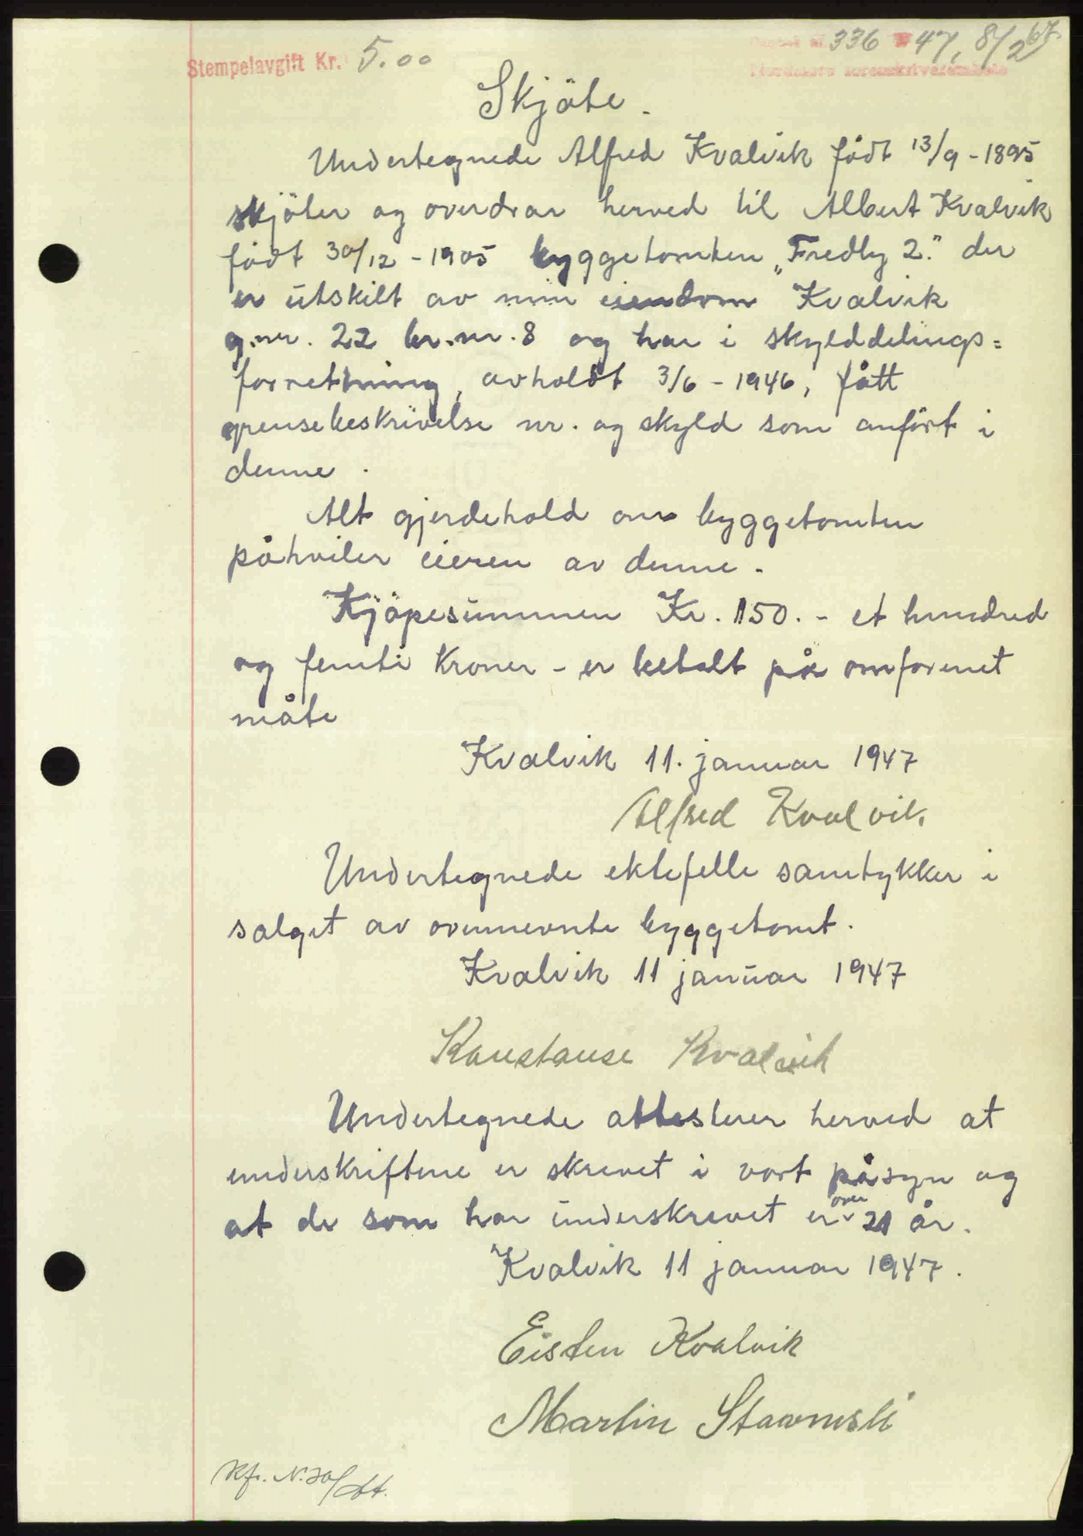 Stempelavgift Kr. 5.00
336 47, 8/2 67.
Skjöte.
Undertegnede Alfred Kvalvik født 13/9 - 1895
skjöter og overdrar herved til Albert Kvalvik
født 30/12 - 1905 byggetomten „Fredly 2." der
er utskilt av min eiendom Kvalvik
g.nr. 22 br.nr. 8 og har i skylddelings=
forretning, avholdt 3/6 - 1946, fått
grensebeskrivelse nr. og skyld som anført i
denne.
Alt gjerdehold om byggetomten
påhviler eieren av denne.
Kjöpesummen Kr. 150. - et hundred
og femti kroner - er betalt på omforenet
måte
Kvalvik 11. januar 1947
Alfred Kvalvik.
Undertegnede ektefelle samtykker i
salget av ovennevnte byggetomt.
Kvalvik 11 januar 1947
Konstanse Kvalvik
Undertegnede attesterer herved at
underskriftene er skrevet i vort påsyn og
at de som har underskrevet er over 21 år.
Kvalvik 11 januar 1947.
Eisten Kvalvik
Martin
Kfr. N. 30/